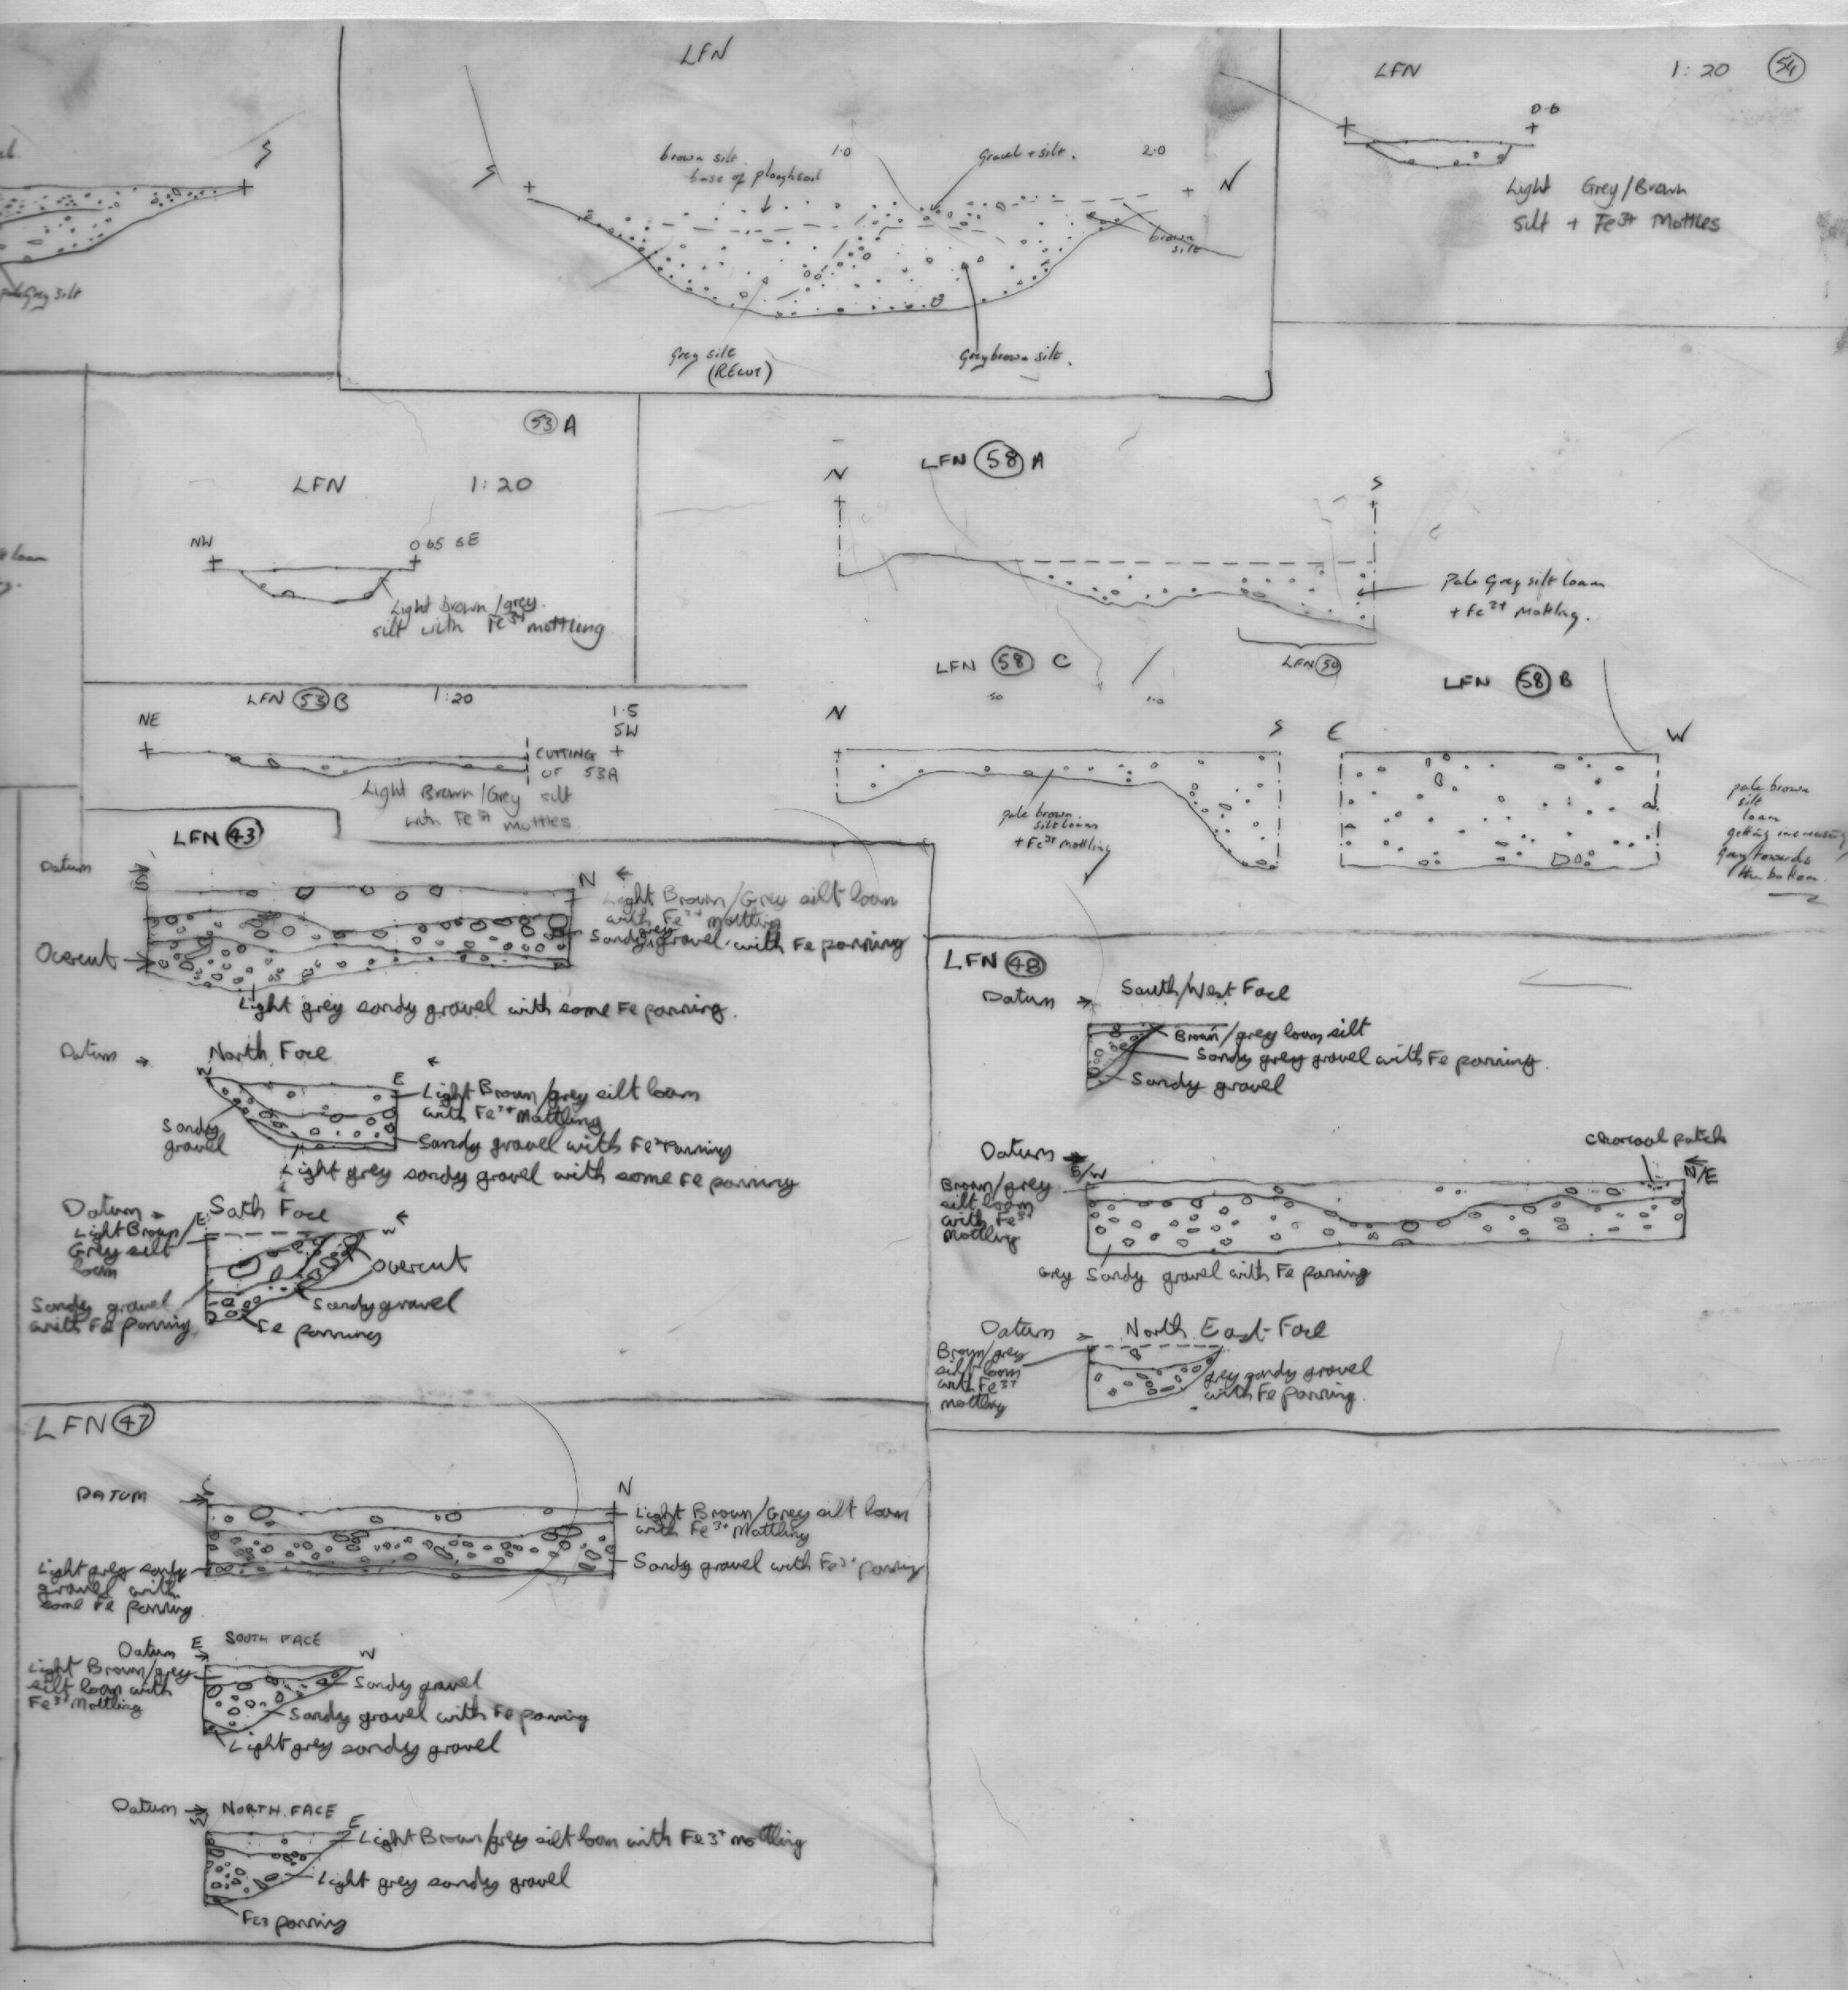 S
pale Grey silt
LFN
brown silt.
base of ploughsoil
1.0
Gravel + silt.
2.0
S
N
brown
silt
Grey silt
(RECUT)
Grey brown silt.
LFN 1:20 54
0.6
Light Grey/Brown
silt + Fe3+ Mottles
loam
53 A
LFN 1:20
NW 0.65 SE
Light brown/grey
silt with Fe3+ mottling
LFN 53 B 1:20
NE
1.5
SW
CUTTING
OF 53A
Light Brown/Grey silt
with Fe3+ mottles
LFN 58 A
N
S
Pale Grey silt loam
+ Fe3+ Mottling.
LFN 50
LFN 58 C
.50 1.0
N
S
pale brown
silt loam
+ Fe3+ Mottling
LFN 58 B
E
W
pale brown
silt
loam
getting increasingly
Grey towards
the bottom
LFN 43
Datum
S
N
Light Brown/Grey silt loam
with Fe3+ mottling
Sandy grey gravel with Fe panning
Overcut
Light grey sandy gravel with some Fe panning.
Datum
North Face
W
E
Light Brown/grey silt loam
with Fe3+ Mottling
Sandy
gravel
Sandy gravel with Fe3+ panning
Light grey sandy gravel with some Fe panning
Datum
South Face
E
W
Light Brown/
Grey silt
loam
Overcut
Sandy gravel
with Fe panning
Sandy gravel
Fe panning
LFN 48
Datum
South/West Face
Brown/grey loam silt
Sandy grey gravel with Fe panning.
Sandy gravel
Charcoal patch
Datum
S/W
N/E
Brown/grey
silt loam
with Fe3+
mottling
Grey Sandy gravel with Fe panning
Datum
North East Face
Brown/grey
silt loam
with Fe3+
mottling
grey sandy gravel
with Fe panning.
LFN 47
DATUM
S
N
Light Brown/Grey silt loam
with Fe3+ Mottling
Sandy gravel with Fe3+ panning
Light grey sandy
gravel with
some Fe panning
Datum
E
SOUTH FACE
W
Light Brown/grey
silt loam with
Fe3+ Mottling
Sandy gravel
Sandy gravel with Fe panning
Light grey sandy gravel
Datum
W
NORTH FACE
E
Light Brown/grey silt loam with Fe3+ mottling
Light grey sandy gravel
Fe3 panning